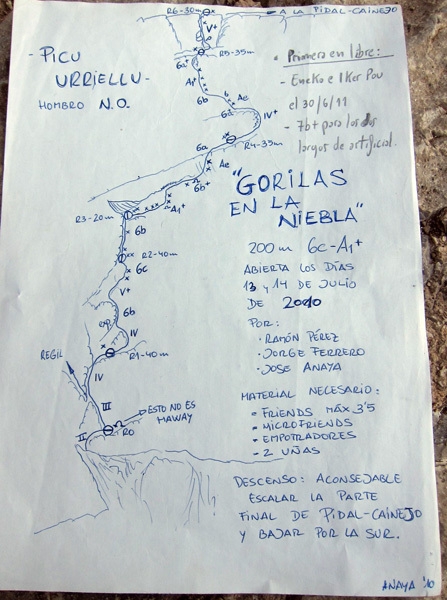 R6-30m
A LA PIDAL-CAINEJO
V+
- PICU
URRIELLU -
HOMBRO N.O.
R5-35m
6a+
A1+
6b
Ae
6a
IV+
6a
R4-35m
Ae
6b+
A1+
R3-20m
6b
R2-40m
6c
V+
6b
IV
R1-40m
REGIL
IV
III
II
R0
ESTO NO ES
HAWAY
• Primera en libre:
- Eneko e Iker Pou
el 30/6/11
- 7b+ para los dos
largos de artificial.
"GORILAS
EN LA
NIEBLA"
200m 6c-A1+
ABIERTA LOS DÍAS
13 y 14 DE JULIO
DE 2010
POR:
• RAMÓN PÉREZ
• JORGE FERRERO
• JOSE ANAYA
MATERIAL NECESARIO:
- FRIENDS MÁX 3'5
- MICROFRIENDS
- EMPOTRADORES
- 2 UÑAS
DESCENSO: ACONSEJABLE
ESCALAR LA PARTE
FINAL DE PIDAL-CAINEJO
Y BAJAR POR LA SUR.
ANAYA '10